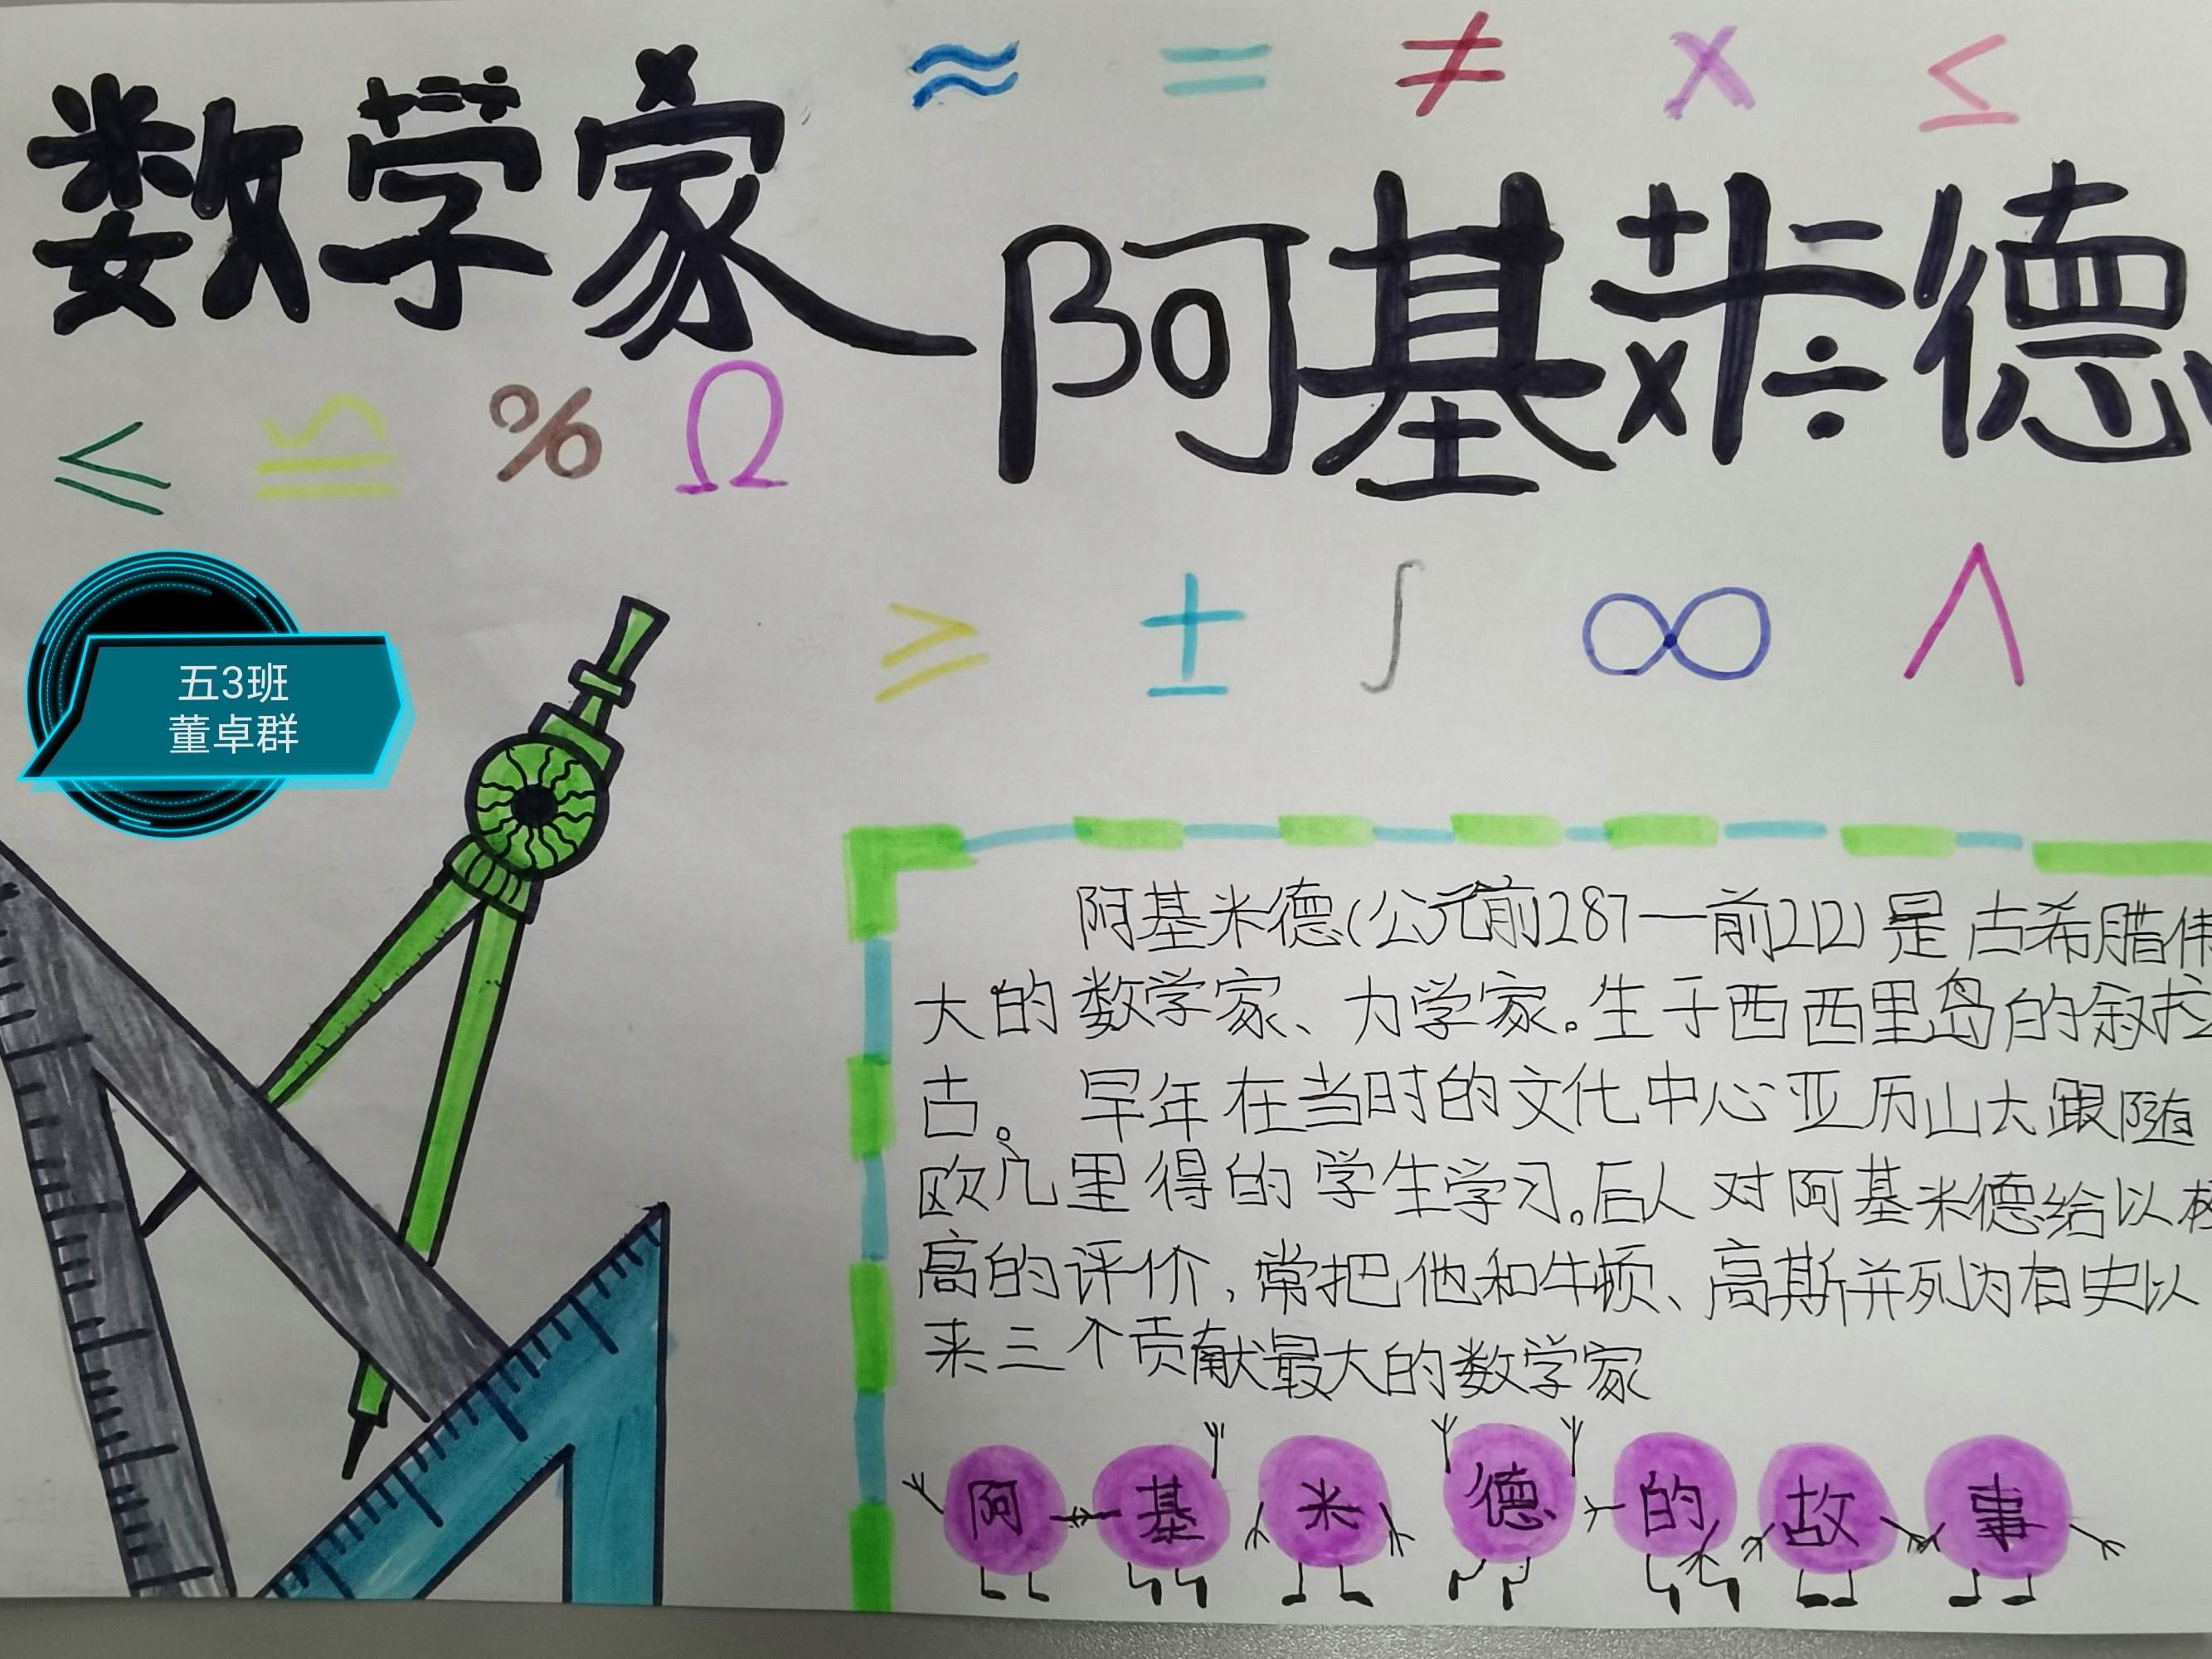 数学家
≈ = ≠ × ≤
阿基米德
≤ ≌ % Ω
五3班
董卓群
≥ ± ∫ ∞ ∧
阿基米德(公元前287—前212)是古希腊伟
大的数学家、力学家。生于西西里岛的叙拉
古。早年在当时的文化中心亚历山大跟随
欧几里得的学生学习。后人对阿基米德给以极
高的评价,常把他和牛顿、高斯并列为有史以
来三个贡献最大的数学家
阿基米德的故事